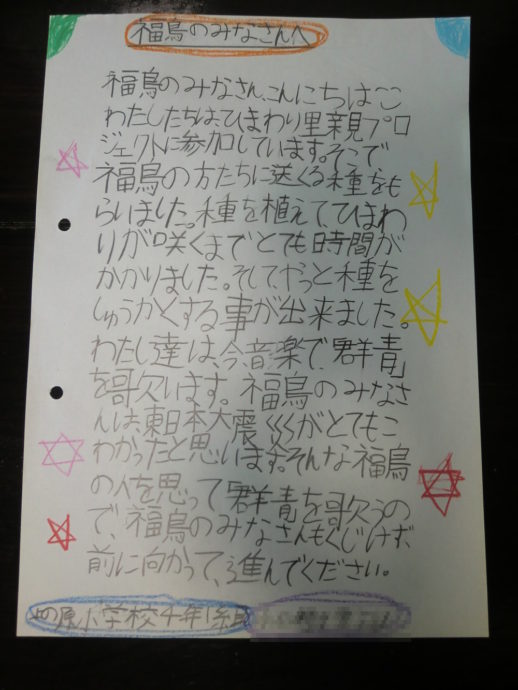 福島のみなさんへ
福島のみなさん、こんにちは。
わたしたちは、ひまわり里親プロ
ジェクトに参加しています。そこで
福島の方たちに送くる種をも
らいました。種を植えて、ひまわ
りが咲くまでとても時間が
かかりました。そして、やっと種を
しゅうかくする事が出来ました。
わたし達は、今、音楽で、「群青」
を歌います。福島のみなさ
んは、東日本大震災がとてもこ
わかったと思います。そんな福島
の人を思って「群青を歌うの
で、福島のみなさんもくじけず、
前に向かって、進んでください。
原小学校4年1組